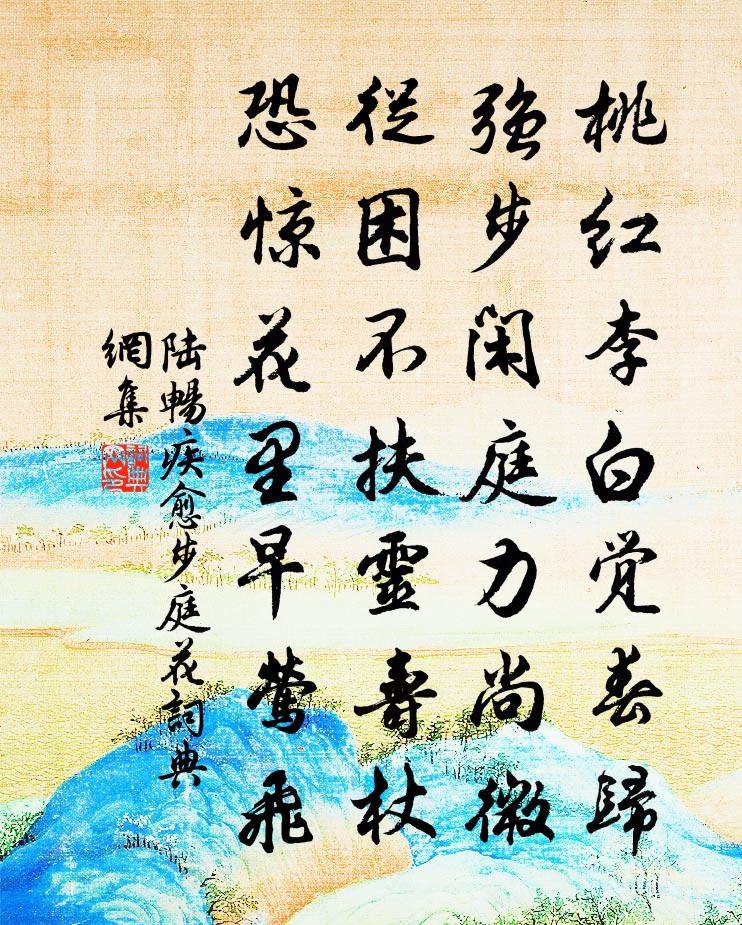 桃红李白觉春歸
强步闲庭力尚微
從困不扶靈壽杖
恐惊花里早莺飛
陆暢疾愈步庭花詞典
網集